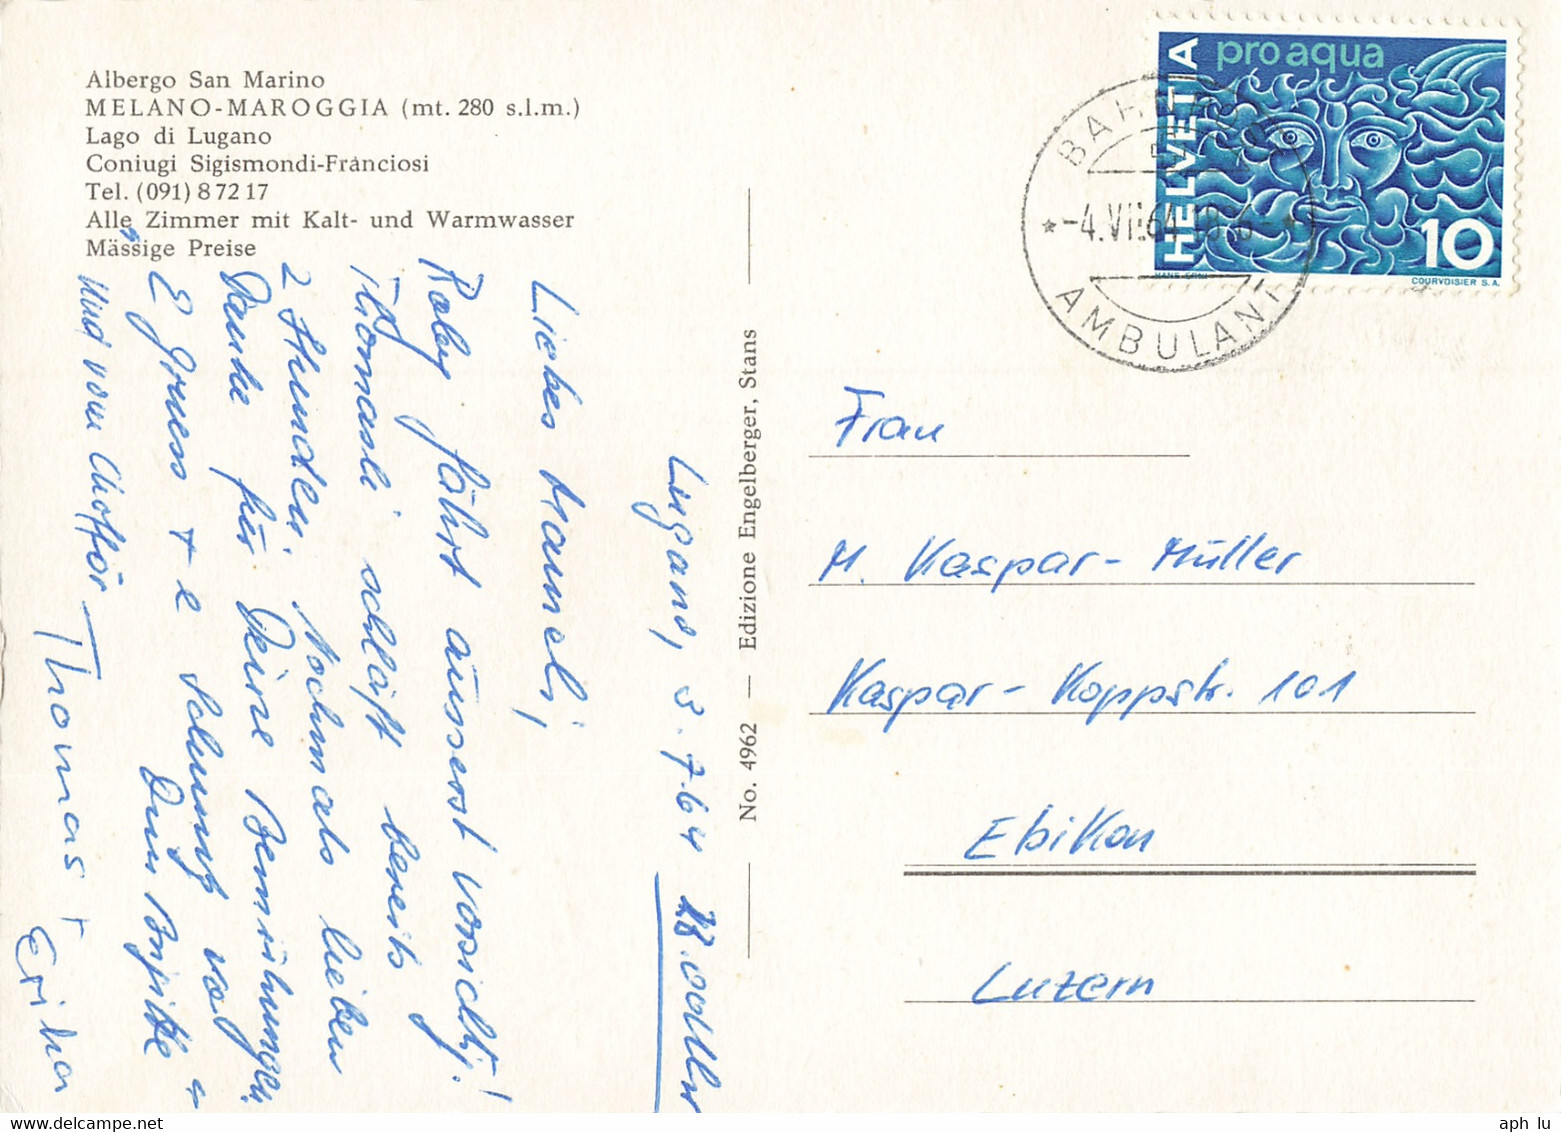 Albergo San Marino
MELANO-MAROGGIA (mt. 280 s.l.m.)
Lago di Lugano
Coniugi Sigismondi-Franciosi
Tel. (091) 8 72 17
Alle Zimmer mit Kalt- und Warmwasser
Mässige Preise
Lugano, 3.7.64 18.00 Uhr
Liebes Hanneli,
Roby fährt äusserst vorsichtig!
Thomasli schläft bereits
2 Stunden. Nochmals lieben
Danke für Deine Bemühungen.
E Gruess + e Schmutz vo
Dim Brigitte +
Und vom Chofför
Thomas + Erika
No. 4962 — Edizione Engelberger, Stans
pro aqua
HELVETIA
10
HANS ERNI
COURVOISIER S.A.
BAHNPOST
-4.VII.64
AMBULANT
Frau
M. Kaspar-Müller
Kaspar-Koppstr. 101
Ebikon
Luzern
www.delcampe.net
aph_lu